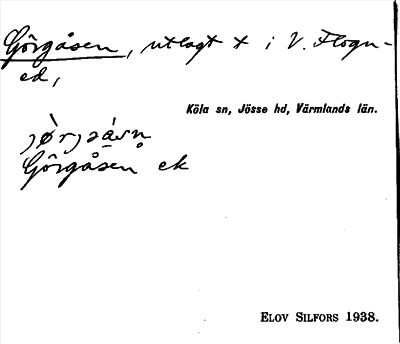 Görgåsen, utlagt + i V. Flogn-
ed,
Köla sn, Jösse hd, Värmlands län.
Görgåsen ek
ELOV SILFORS 1938.